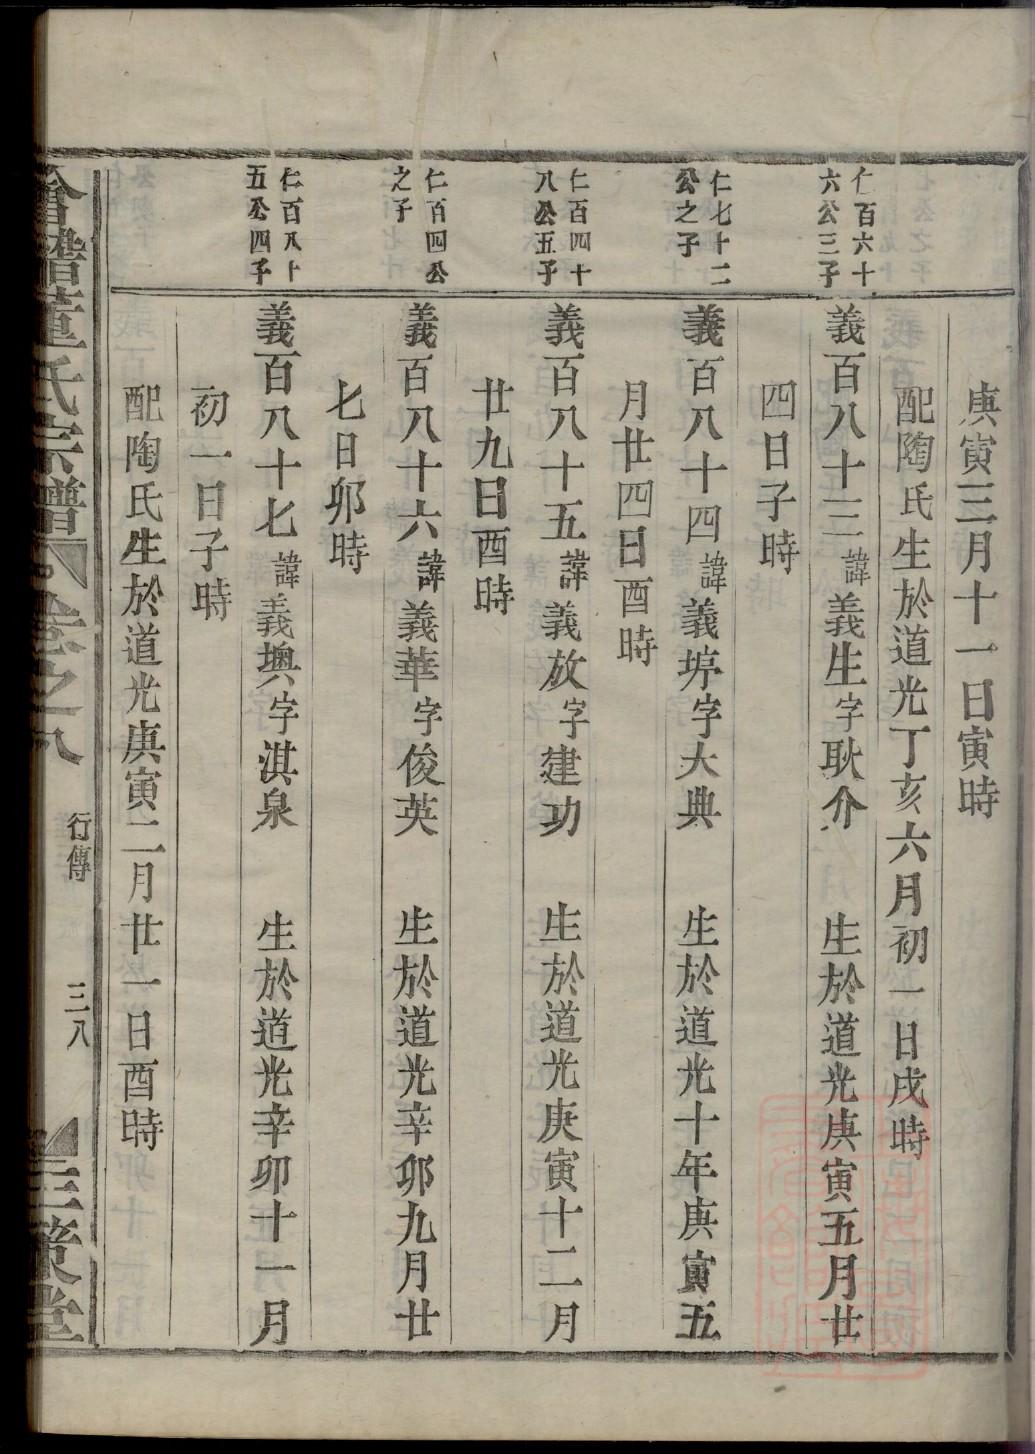 庚寅三月十一日寅時
配陶氏生於道光丁亥六月初一日戌時
仁百六十
六公三子
義百八十三諱義生字耿介　生於道光庚寅五月廿
四日子時
仁七十二
公之子
義百八十四諱義埻字大典　生於道光十年庚寅五
月廿四日酉時
仁百四十
八公五子
義百八十五諱義放字建功　生於道光庚寅十二月
廿九日酉時
仁百四公
之子
義百八十六諱義華字俊英　生於道光辛卯九月廿
七日卯時
仁百八十
五公四子
義百八十七諱義墺字淇泉　生於道光辛卯十一月
初一日子時
配陶氏生於道光庚寅二月廿一日酉時
會稽董氏宗譜　卷之八　行傳　三八　三策堂